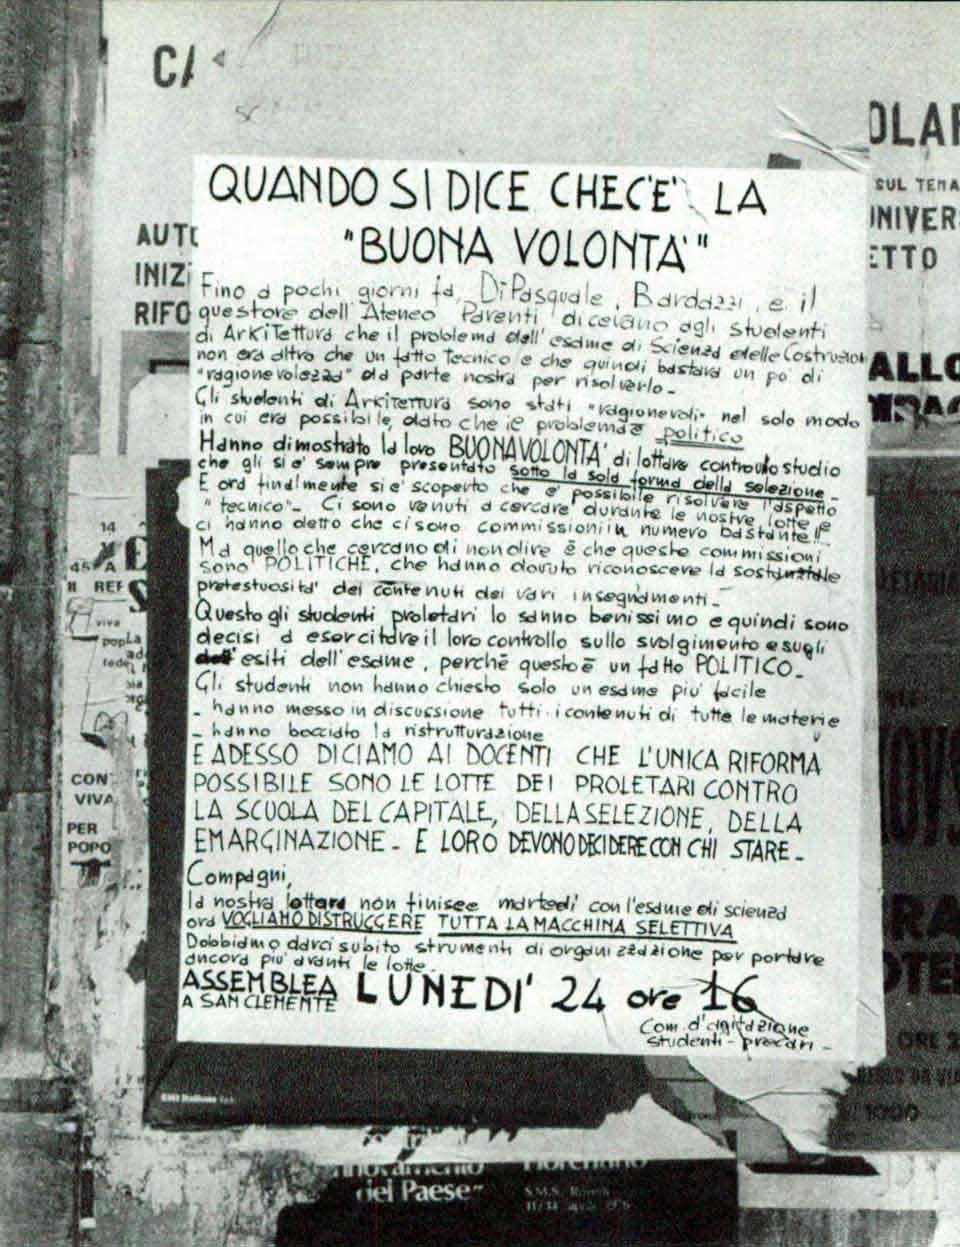 CA
OLAR
SUL TEMA
UNIVER
ETTO
AUTO
INIZI
RIFO
ALLO
QUANDO SI DICE CHE C'E' LA
"BUONA VOLONTA'"
Fino a pochi giorni fa, Di Pasquale, Bardazzi, e il
questore dell'Ateneo Parenti dicevano agli studenti
di ArKitettura che il problema dell'esame di Scienza delle Costruzioni
non era altro che un fatto tecnico e che quindi bastava un po' di
"ragionevolezza" da parte nostra per risolverlo-
Gli studenti di ArKitettura sono stati "ragionevoli" nel solo modo
in cui era possibile, dato che il problema è politico
Hanno dimostrato la loro BUONA VOLONTA' di lottare contro lo studio
che gli si e' sempre presentato sotto la sola forma della selezione-
E ora finalmente si e' scoperto che e' possibile risolvere l'aspetto
"tecnico"- Ci sono venuti a cercare durante le nostre lotte e
ci hanno detto che ci sono commissioni in numero bastante!!
Ma quello che cercano di non dire è che queste commissioni
sono POLITICHE, che hanno dovuto riconoscere la sostanziale
pretestuosita' dei contenuti dei vari insegnamenti-
Questo gli studenti proletari lo sanno benissimo e quindi sono
decisi a esercitare il loro controllo sullo svolgimento e sugli
esiti dell'esame, perchè questo è un fatto POLITICO-
Gli studenti non hanno chiesto solo un esame piu' facile
- hanno messo in discussione tutti i contenuti di tutte le materie
- hanno bocciato la ristrutturazione
E ADESSO DICIAMO AI DOCENTI CHE L'UNICA RIFORMA
POSSIBILE SONO LE LOTTE DEI PROLETARI CONTRO
LA SCUOLA DEL CAPITALE, DELLA SELEZIONE, DELLA
EMARGINAZIONE- E LORO DEVONO DECIDERE CON CHI STARE-
Compagni,
la nostra lottare non finisce martedi' con l'esame di scienza
ora VOGLIAMO DISTRUGGERE TUTTA LA MACCHINA SELETTIVA
Dobbiamo darci subito strumenti di organizzazione per portare
ancora piu' avanti le lotte-
ASSEMBLEA LUNEDI' 24 ore 16
A SAN CLEMENTE
Com. d'agitazione
studenti-precari-
14
45 A
II REF
viva
pop
fede
CON
VIVA
PER
POPO
La
RA
OTE
ORE 2
1000
del Paese"
S.M.S.